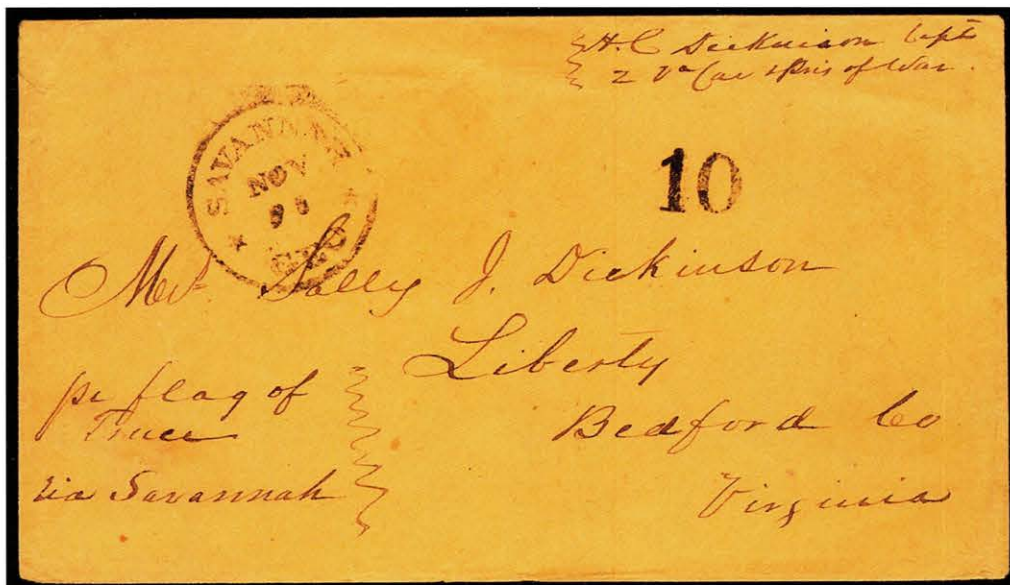 H. C Dickinson Capt
2 Va Cav & Pris of War
SAVANNAH
NOV
GEO
10
Mrs Sally J. Dickinson
Liberty
Bedford Co
Virginia
pr flag of
Truce
via Savannah